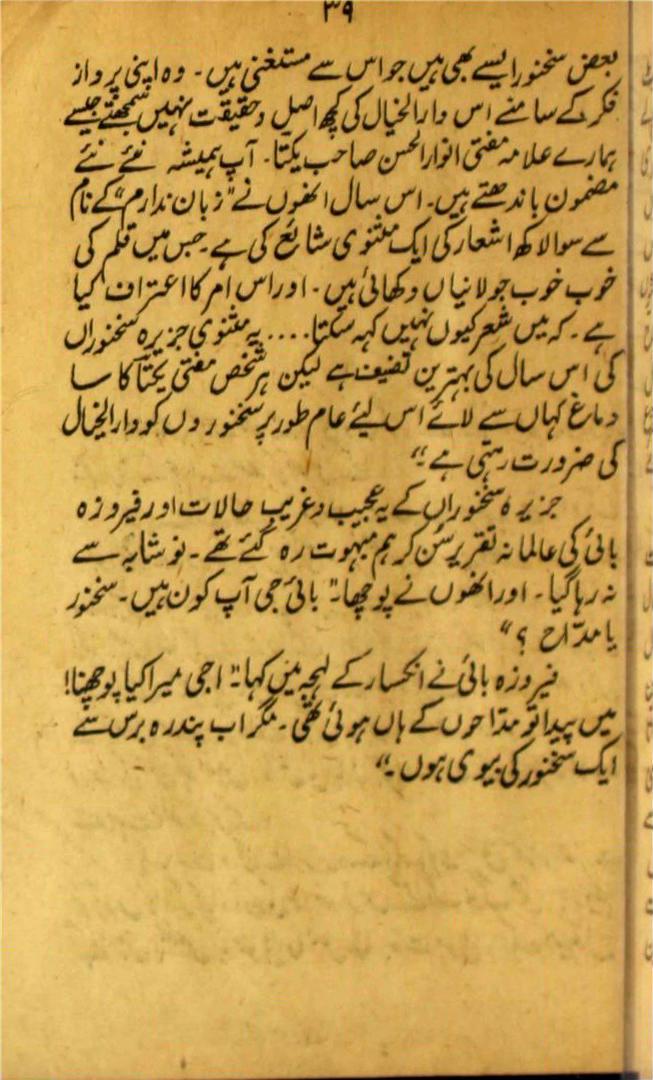 ۳۹
بعض سخنور ایسے بھی ہیں جو اس سے مستغنی ہیں۔ وہ اپنی پرواز
فکر کے سامنے اس دارالخیال کی کچھ اصل و حقیقت نہیں سمجھتے جیسے
ہمارے علامہ مفتی انوار الحسن صاحب یکتا۔ آپ ہمیشہ نئے نئے
مضمون باندھتے ہیں۔ اس سال انھوں نے "زبان ندارم" کے نام
سے سوا لاکھ اشعار کی ایک مثنوی شایع کی ہے۔ جس میں قلم کی
خوب خوب جولانیاں دکھائی ہیں۔ اور اس امر کا اعتراف کیا
ہے۔ کہ میں شعر کیوں نہیں کہہ سکتا.... یہ مثنوی جزیرہ سخنوراں
کی اس سال کی بہترین تصنیف ہے لیکن ہر شخص مفتی یکتا کا سا
دماغ کہاں سے لائے اس لیے عام طور پر سخنوروں کو دارالخیال
کی ضرورت رہتی ہے۔"
جزیرہ سخنوراں کے یہ عجیب و غریب حالات اور فیروزہ
بائی کی عالمانہ تقریر سُن کر ہم مبہوت رہ گئے تھے۔ نوشابہ سے
نہ رہا گیا۔ اور انھوں نے پوچھا۔" بائی جی آپ کون ہیں۔ سخنور
یا مدّاح ؟"
فیروزہ بائی نے انکسار کے لہجہ میں کہا۔" اجی میرا کیا پوچھنا!
میں پیدا تو مدّاحوں کے ہاں ہوئی تھی۔ مگر اب پندرہ برس سے
ایک سخنور کی بیوی ہوں۔"